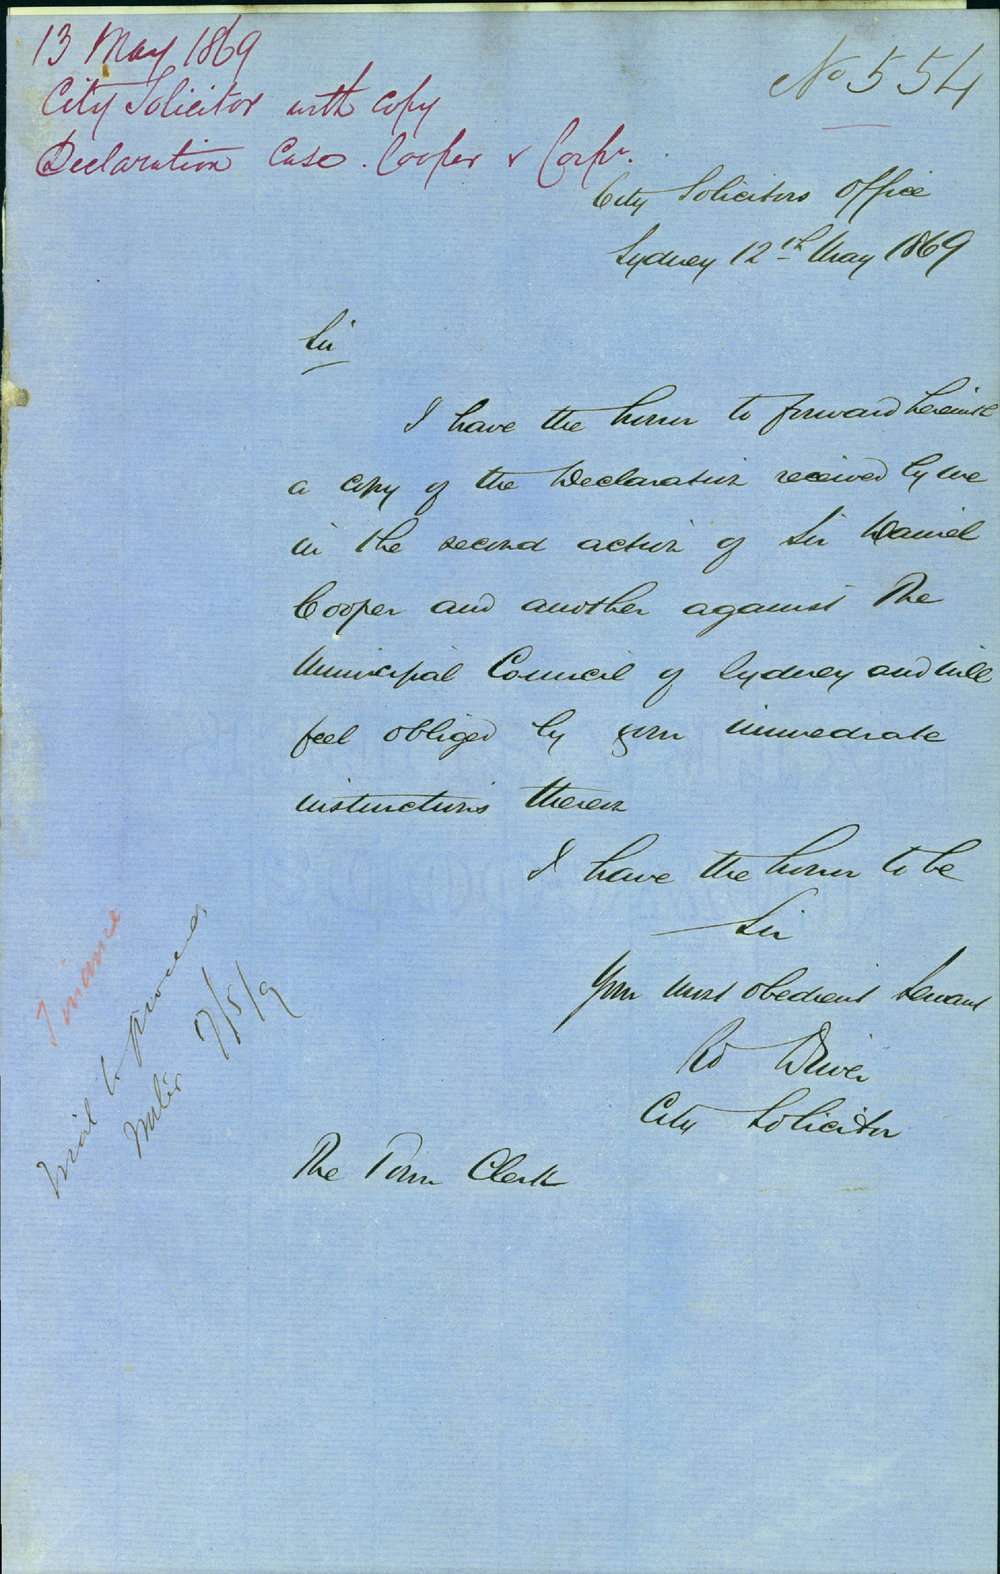 13 May 1869
City Solicitor with copy
Declaration Case. Cooper v Corpn.
No 554
City Solicitors Office
Sydney 12th May 1869
Sir
I have the honor to forward herewith
a copy of the Declaration received by me
in the second action of Sir Daniel
Cooper and another against The
Municipal Council of Sydney and will
feel obliged by your immediate
instructions therein
I have the honor to be
Sir
Your most obedient Servant
Rd Driver
City Solicitor
The Town Clerk
Finance
to